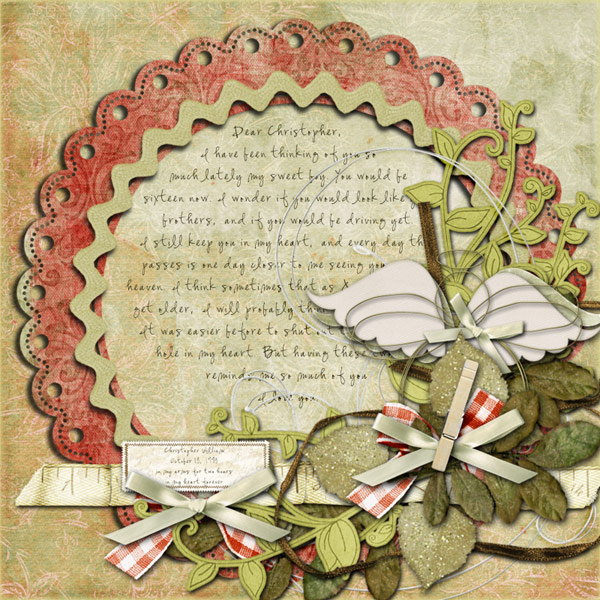 Dear Christopher,
I have been thinking of you so
much lately my sweet boy. You would be
sixteen now. I wonder if you would look like
brothers, and if you would be driving yet
I still keep you in my heart, and every day th
passes is one day closer to me seeing you
heaven. I think sometimes that as I
get older, I will probably thin
It was easier before to shut out
hole in my heart. But having these
remind me so much of you
I love you
Christopher William
October 13, 1993
in my arms for two hours
in my heart forever